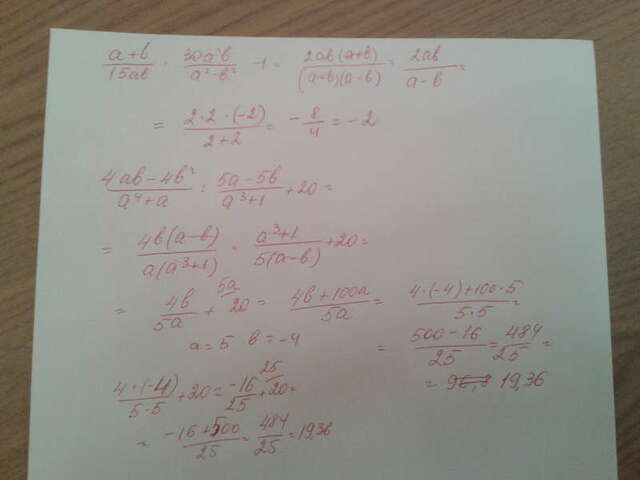 a+b/15ab · 30a²b/a²-b² -1 = 2ab(a+b)/(a+b)(a-b) = 2ab/a-b =
= 2·2·(-2)/2+2 = -8/4 = -2
4ab-4b²/a⁴+a : 5a-5b/a³+1 +20=
= 4b(a-b)/a(a³+1) · a³+1/5(a-b) +20=
= 4b/5a + 5a/20 = 4b+100a/5a = 4·(-4)+100·5/5·5 =
a=5 b=-4
= 500-16/25 = 484/25 =
= 19,36
4·(-4)/5·5 +20= -16/25 + 25/20=
= -16+500/25 = 484/25 = 19,36